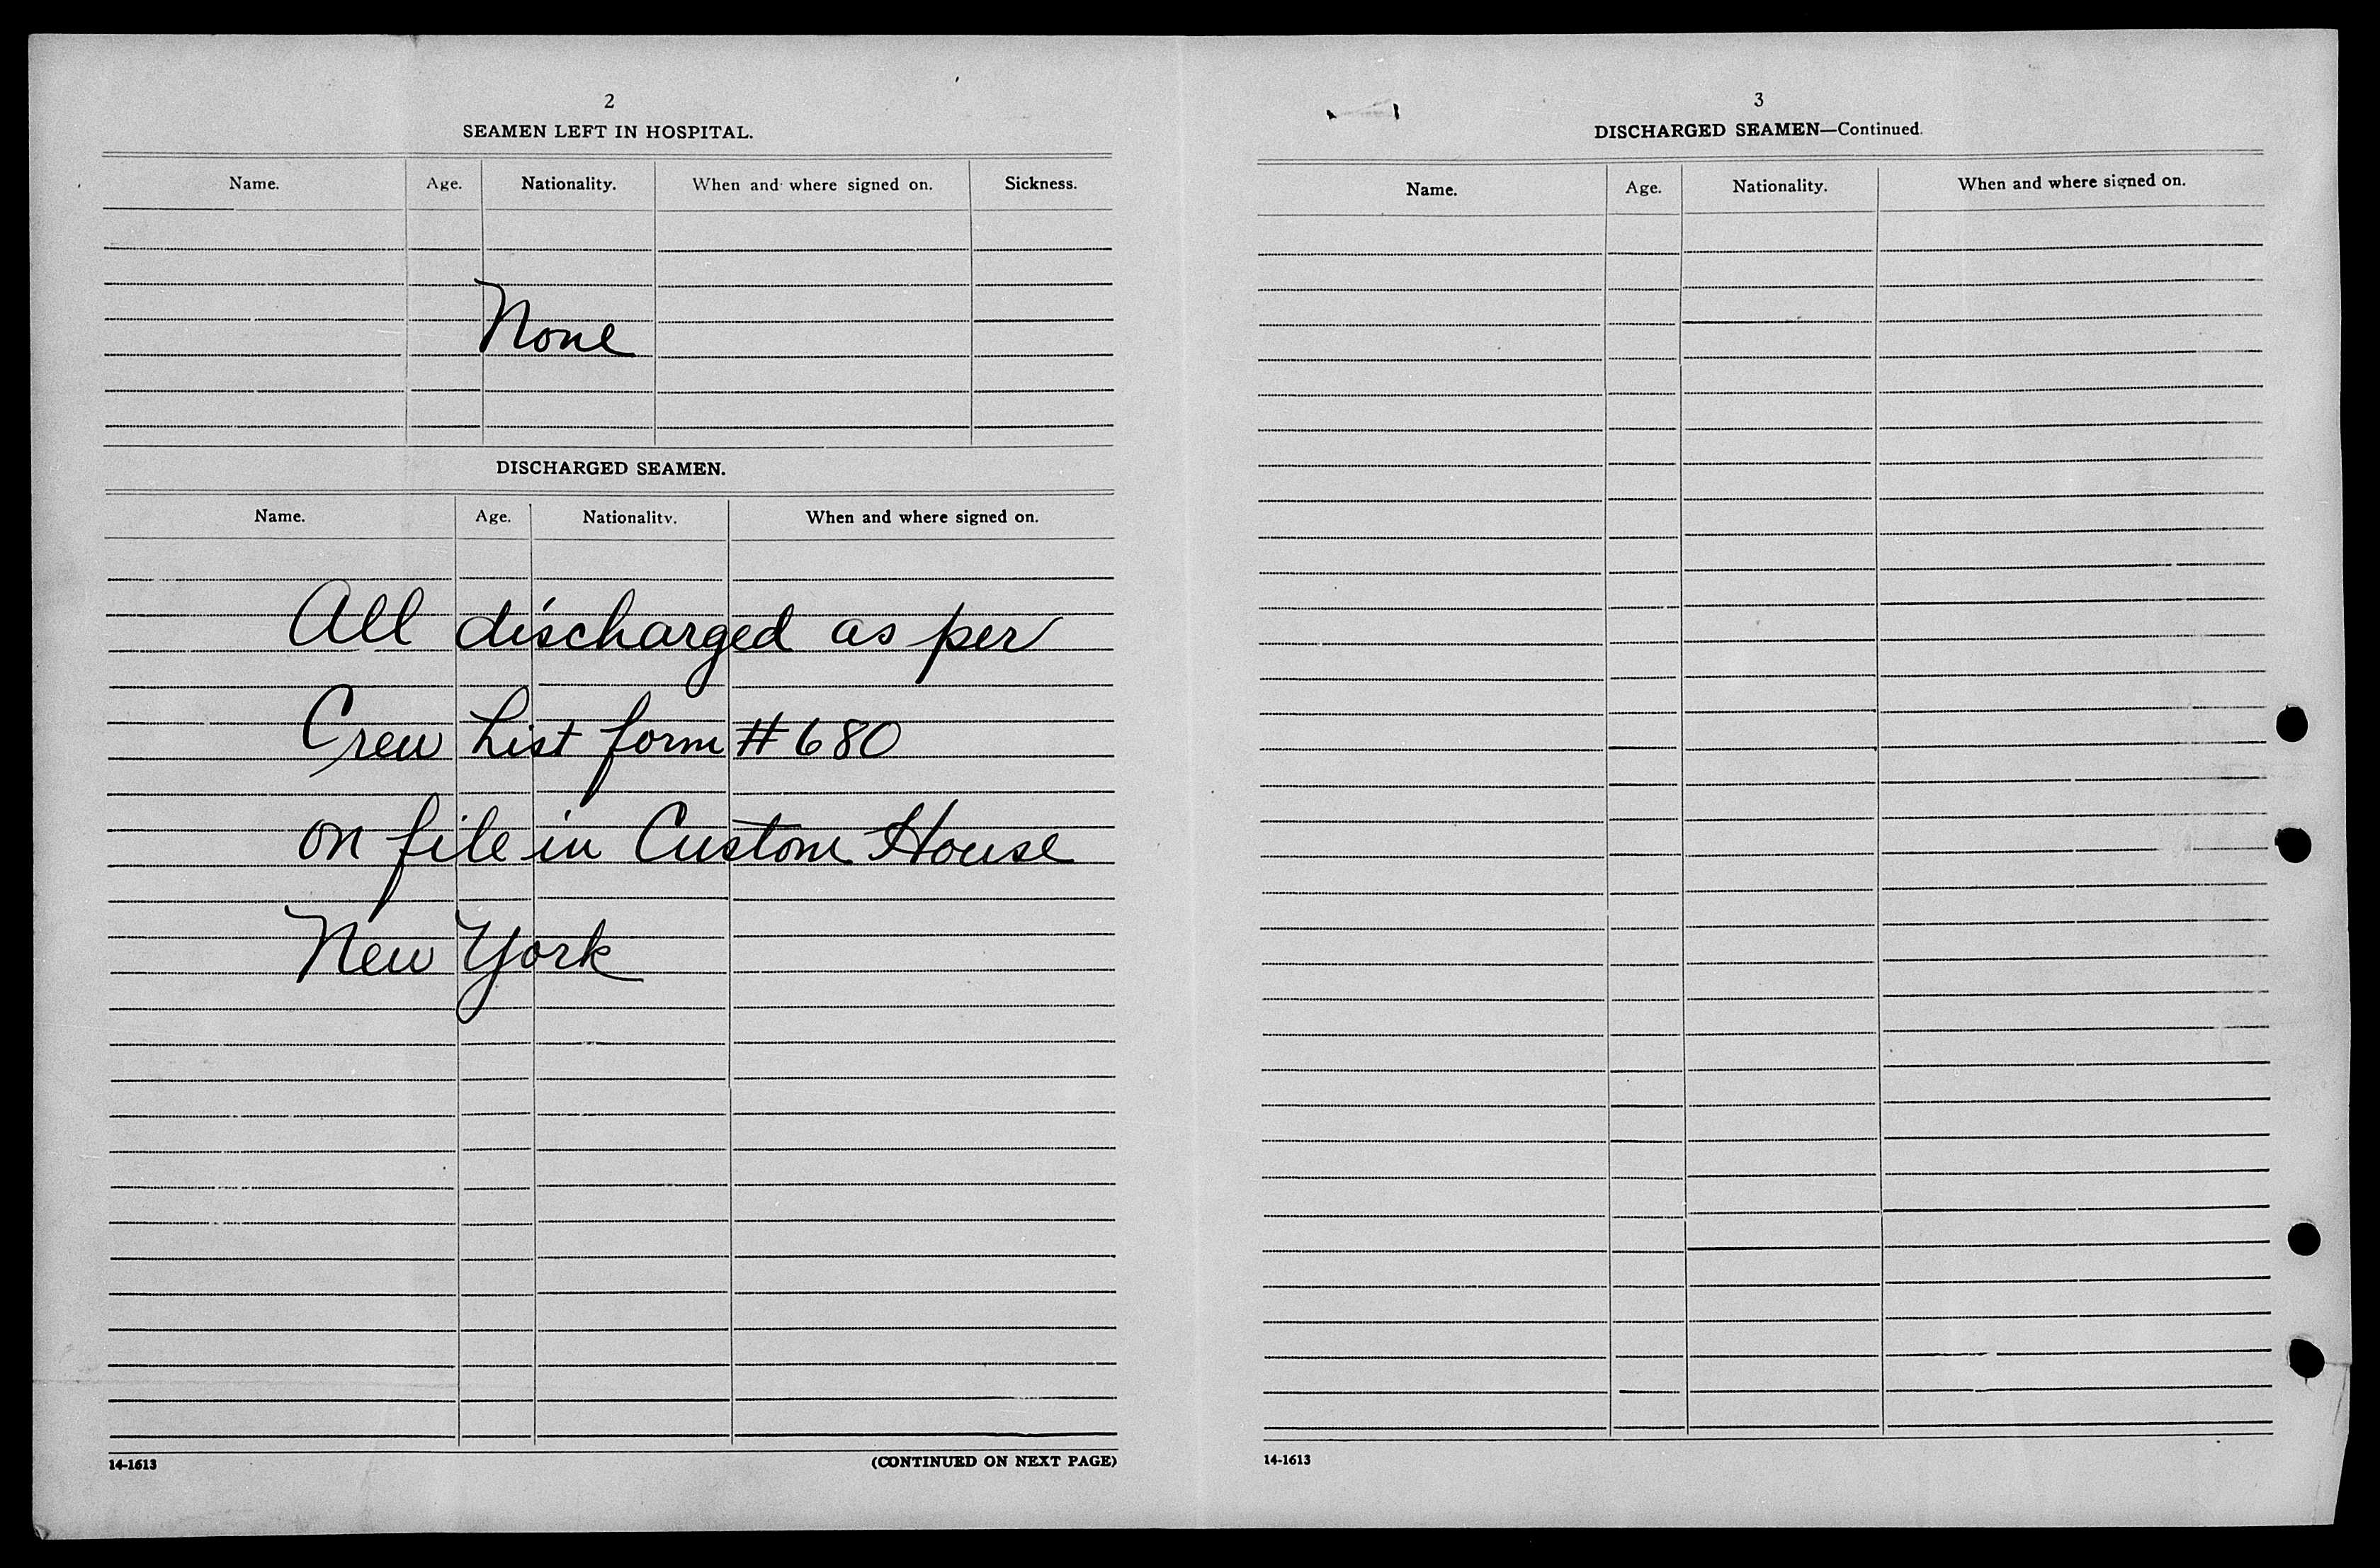 2
SEAMEN LEFT IN HOSPITAL.
Name. Age. Nationality. When and where signed on. Sickness.
None
DISCHARGED SEAMEN.
Name. Age. Nationality. When and where signed on.
All discharged as per
Crew List form # 680
on file in Custom House
New York
14-1613 (CONTINUED ON NEXT PAGE)
3
DISCHARGED SEAMEN—Continued.
Name. Age. Nationality. When and where signed on.
14-1613